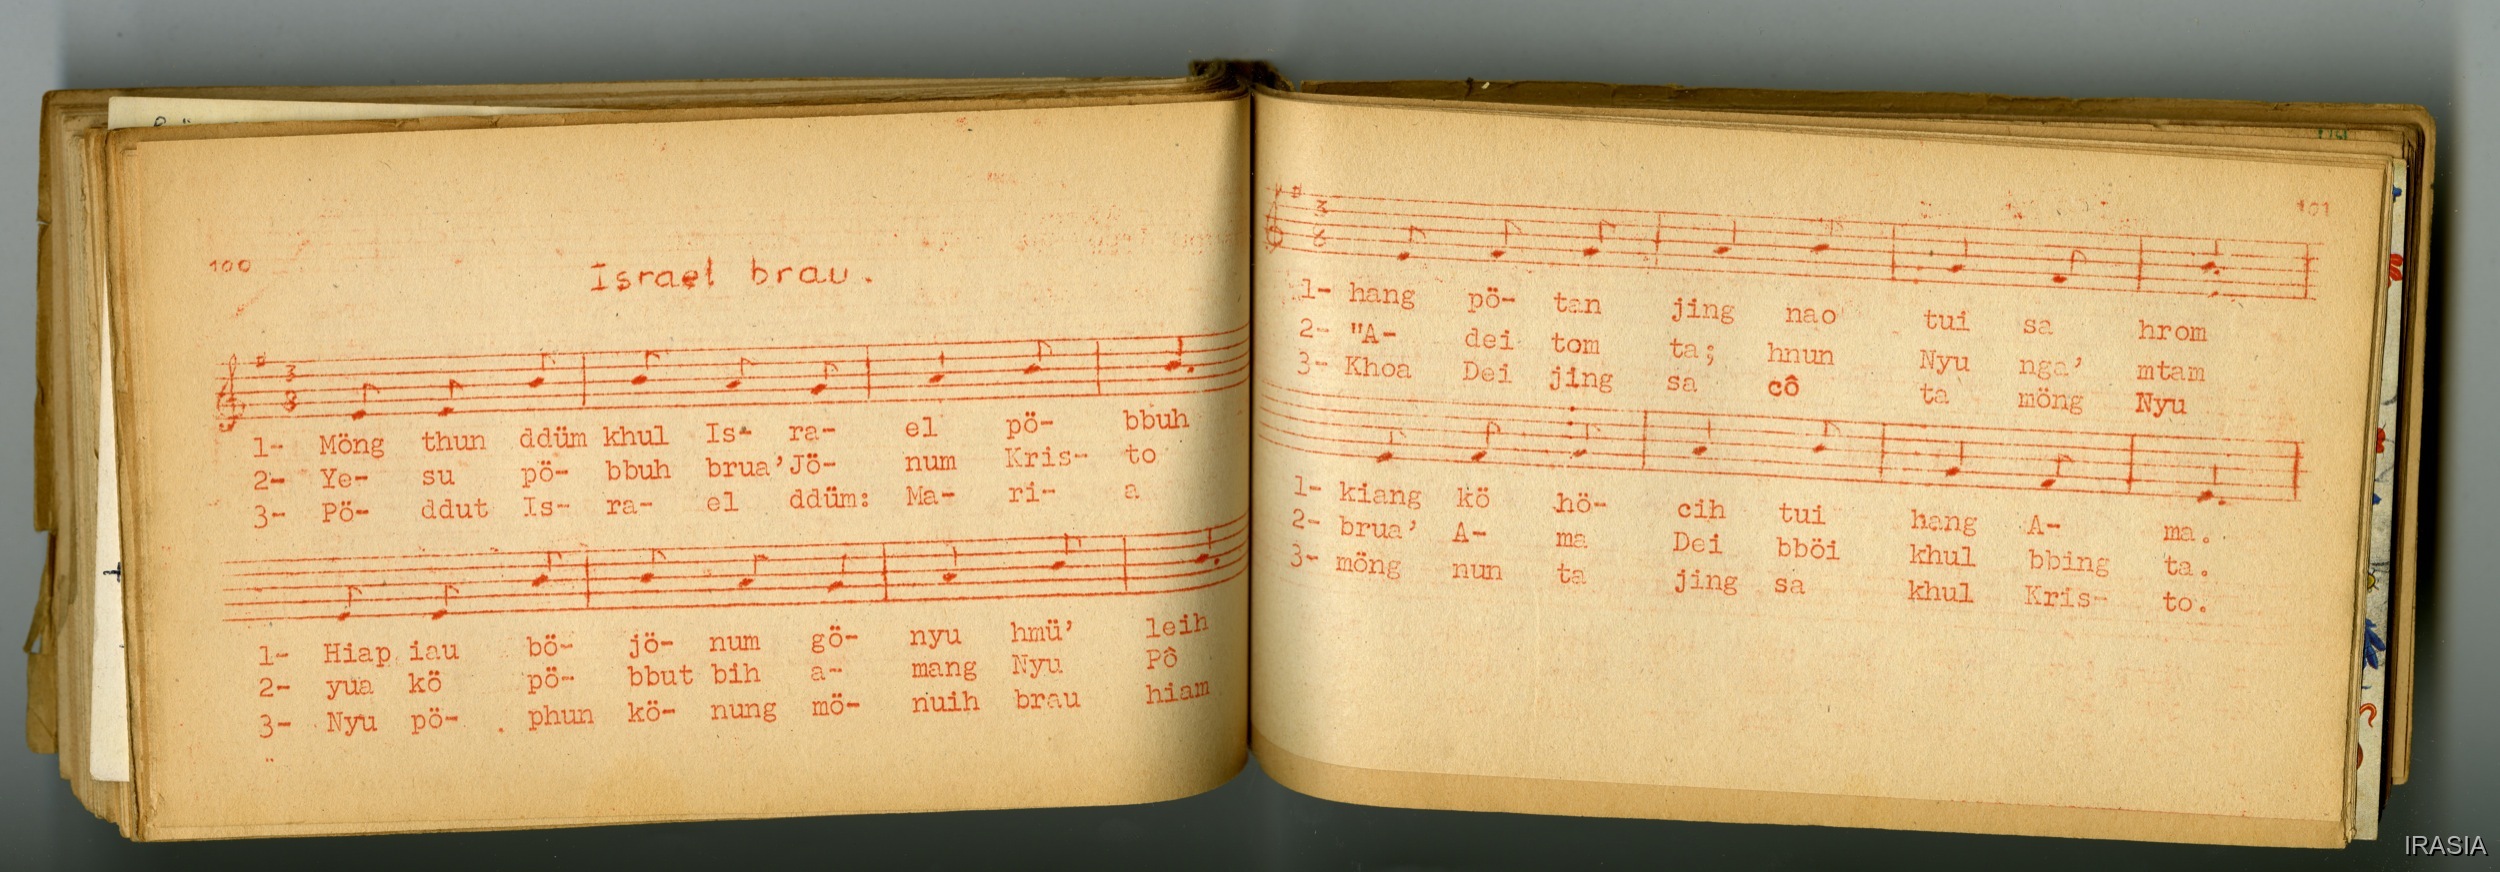 100
Israel brau.
3
8
1- Möng thun ddüm khul Is- ra- el pö- bbuh
2- Ye- su pö- bbuh brua' Jö- num Kris- to
3- Pö- ddut Is- ra- el ddüm: Ma- ri- a
1- Hiap iau bö- jö- num gö- nyu hmü' leih
2- yua kö pö- bbut bih a- mang Nyu Pô
3- Nyu pö- phun kö- nung mö- nuih brau hiam
101
1- hang pö- tan jing nao tui sa hrom
2- "A- dei tom ta; hnun Nyu nga' mtam
3- Khoa Dei jing sa cô ta möng Nyu
1- kiang kö hö- cih tui hang A- ma.
2- brua' A- ma Dei bböi khul bbing ta.
3- möng nun ta jing sa khul Kris- to.
IRASIA